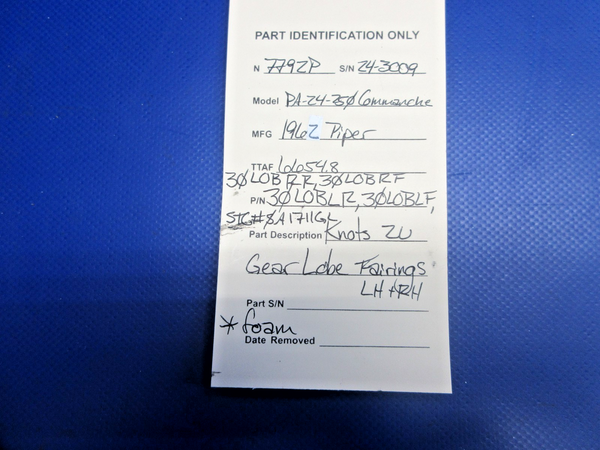 PART IDENTIFICATION ONLY
N 7792P S/N 24-3009
Model PA-24-250 Commanche
MFG 1962 Piper
TTAF 6654.8
30LOBRR, 30LOBRF
P/N 30LOBLR, 30LOBLF,
STC# SA1711GL
Part Description Knots 2U
Gear Lobe Fairings
LH + RH
Part S/N
* foam
Date Removed